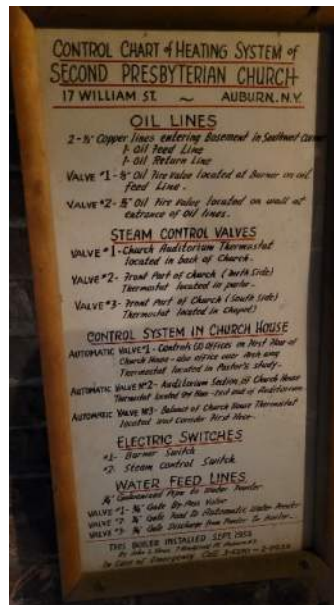 CONTROL CHART of HEATING SYSTEM of
SECOND PRESBYTERIAN CHURCH
17 WILLIAM ST. ~ AUBURN. N.Y.
OIL LINES
Copper lines entering Basement in Southwest Corner
1- Oil Feed Line
1- Oil Return Line
VALVE #1- Oil Fire Valve located at Burner on oil
feed Line.
VALVE #2- Oil Fire Valve located on wall at
entrance of Oil lines.
STEAM CONTROL VALVES
VALVE #1- Church Auditorium Thermostat
located in back of Church.
VALVE #2- Front Part of Church (North Side)
Thermostat located in parlor.
VALVE #3- Front Part of Church (South Side)
Thermostat located in Chapel)
CONTROL SYSTEM IN CHURCH HOUSE
AUTOMATIC VALVE #1- Controls Offices on First Floor of
Church House - also office over Arch using
Thermostat located in Pastor's study-
AUTOMATIC VALVE #2- Auditorium Section of Church House
Thermostat located of Auditorium
AUTOMATIC VALVE #3- Balance of Church House Thermostat
located First Floor-
ELECTRIC SWITCHES
#1- Burner Switch
#2- Steam Control Switch
WATER FEED LINES
3/4" Galvanized Pipe to Water Feeder
VALVE #1- 3/4" Gate By-Pass Valve
VALVE #2- 3/4" Gate Feed to Automatic Water Feeder
VALVE #3- 3/4" Gate Discharge from Feeder to
THIS BOILER INSTALLED SEPT. 1954
By John
In Case of Emergency Call